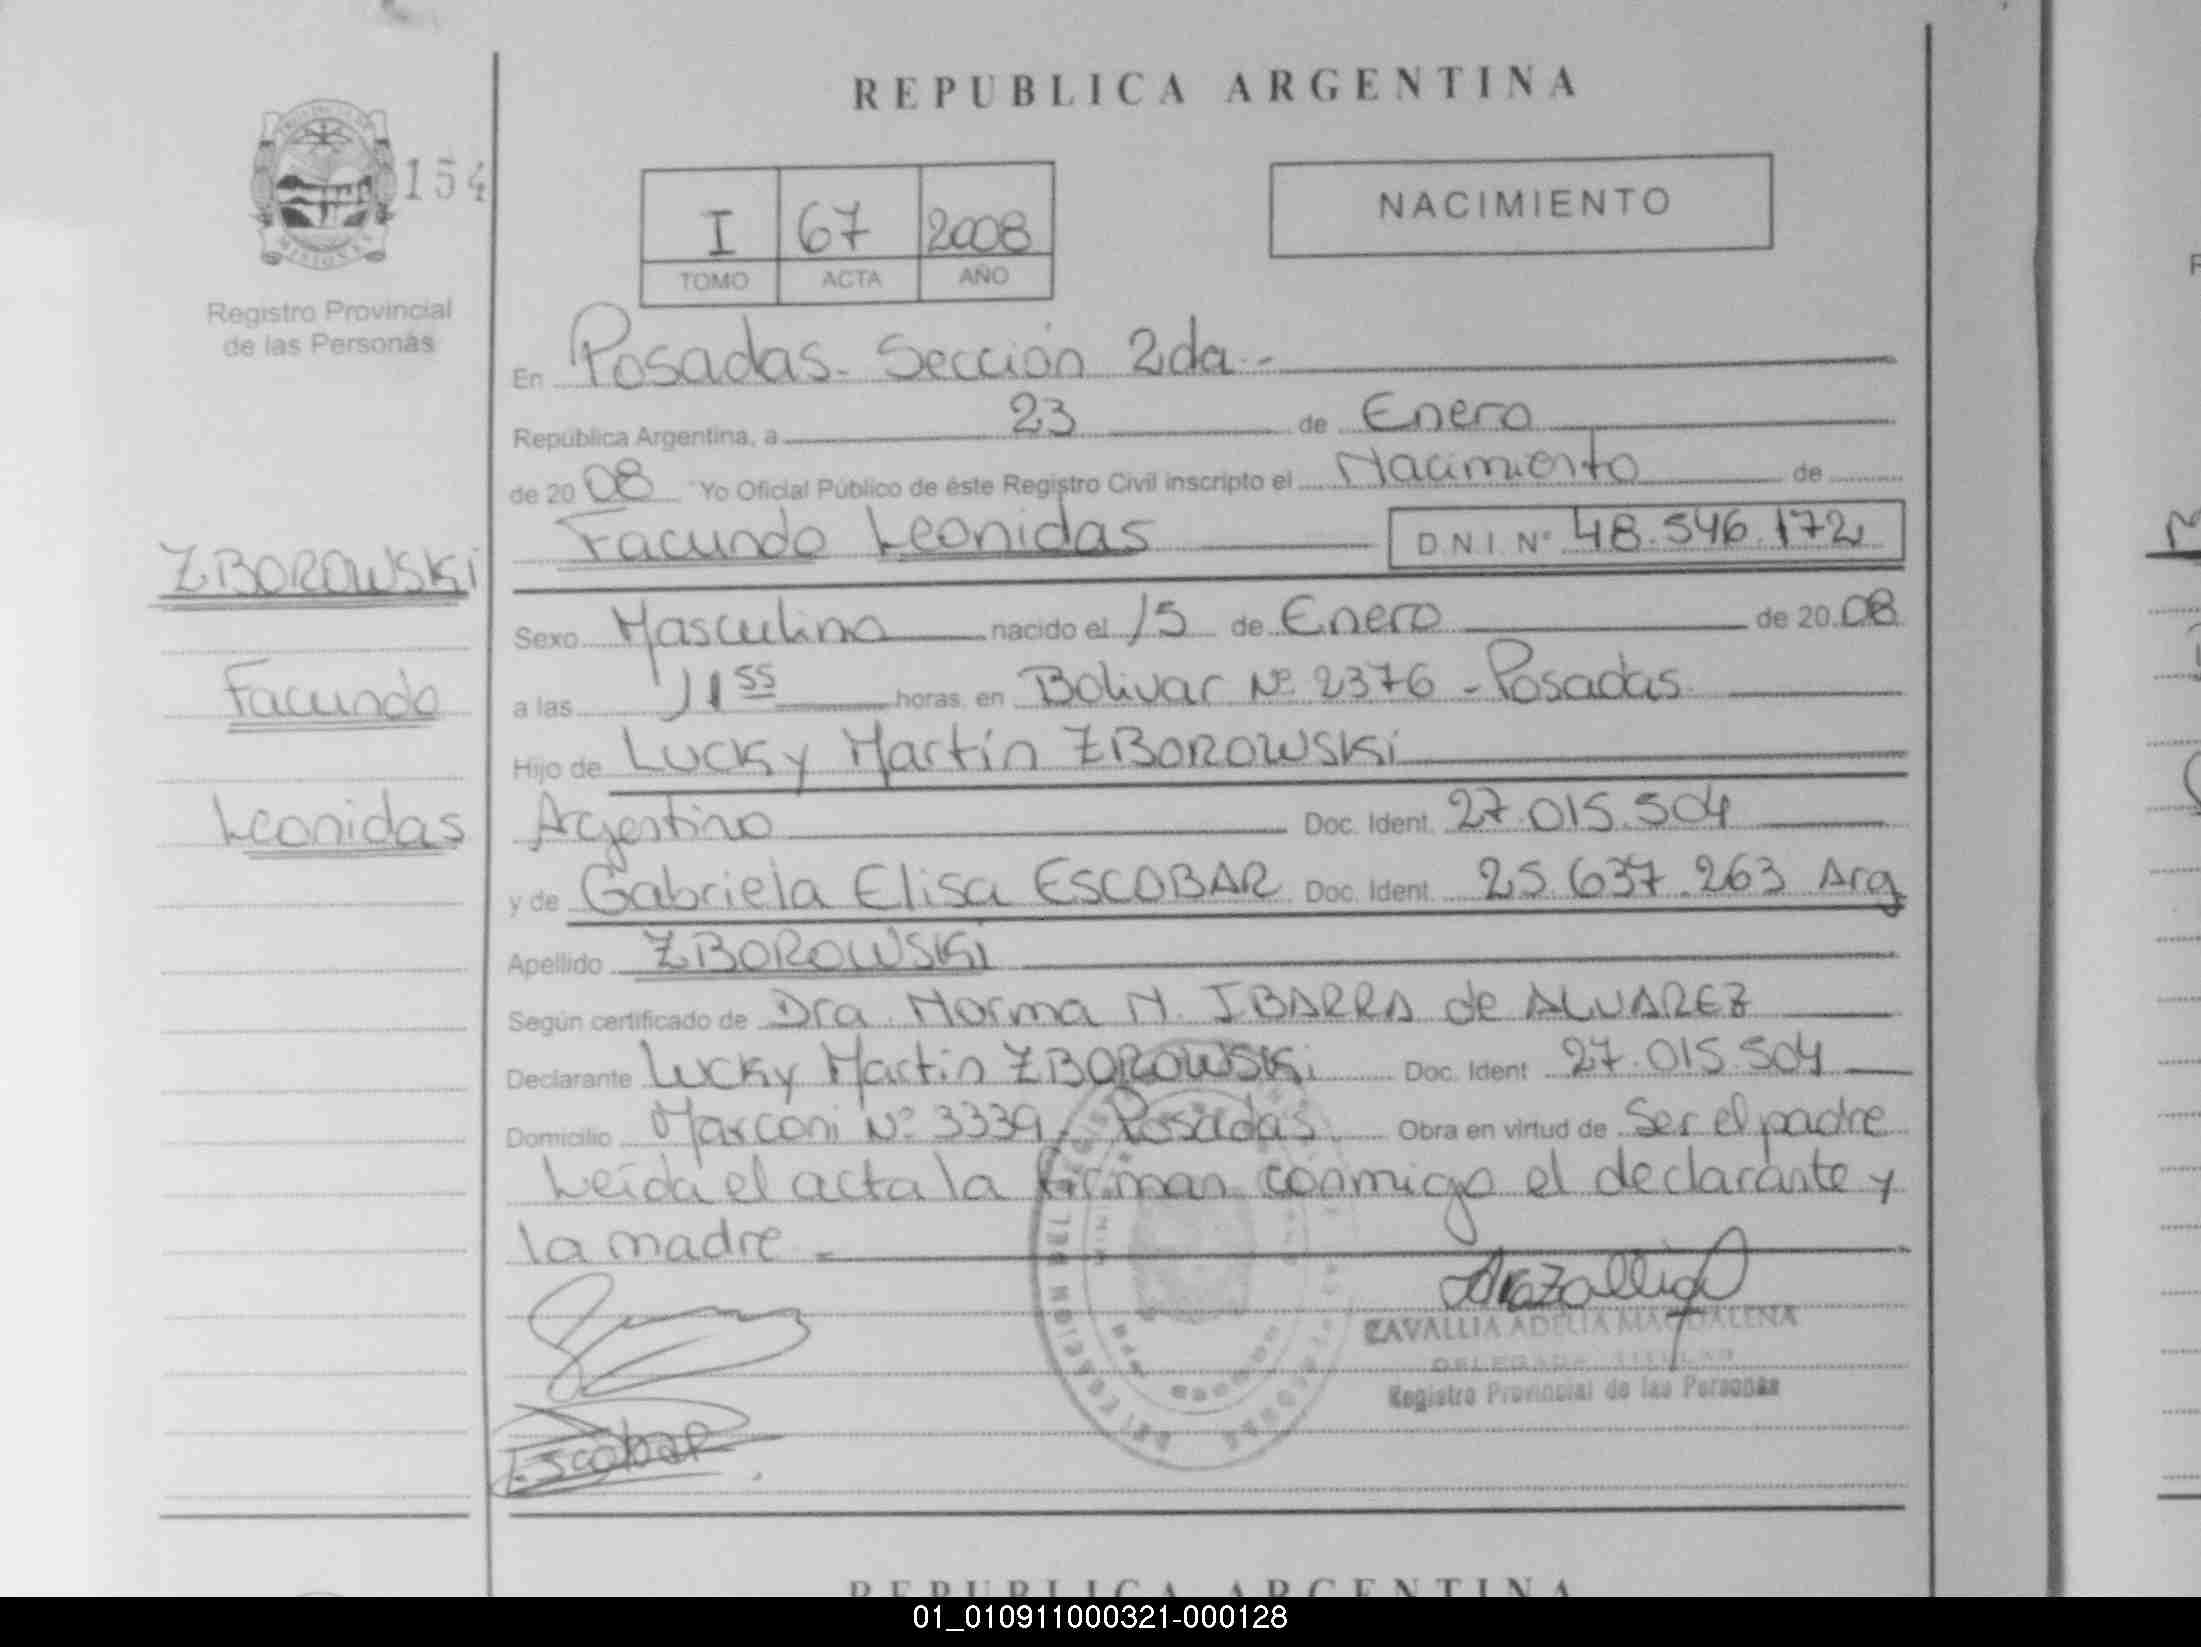 REPUBLICA ARGENTINA
154
MISIONES
Registro Provincial
de las Personas
I 67 2008
TOMO ACTA AÑO
NACIMIENTO
En Posadas. Sección 2da.-
República Argentina, a 23 de Enero
de 2008 Yo Oficial Público de éste Registro Civil inscripto el Nacimiento de
Facundo Leonidas D N I. Nº 48.546.172
ZBOROWSKi
Facundo
Leonidas
Sexo Masculino nacido el 15 de Enero de 20.08
a las 11 55 horas, en Bolivar Nº 2376 - Posadas
Hijo de Lucky Martín ZBOROWSKi
Argentino Doc. Ident. 27.015.504
y de Gabriela Elisa ESCOBAR Doc. Ident. 25.637.263 Arg
Apellido ZBOROWSKi
Según certificado de Dra. Norma N. IBARRA de ALVAREZ
Declarante Lucky Martin ZBOROWSKi Doc. Ident 27.015.504
Domicilio Marconi Nº 3339, Posadas. Obra en virtud de Ser el padre
Leída el acta la firman conmigo el declarante y
la madre -
ZAVALLIA ADELIA MAGDALENA
DELEGADA TITULAR
Registro Provincial de las Personas
Escobar
REPUBLICA ARGENTINA
01_010911000321-000128